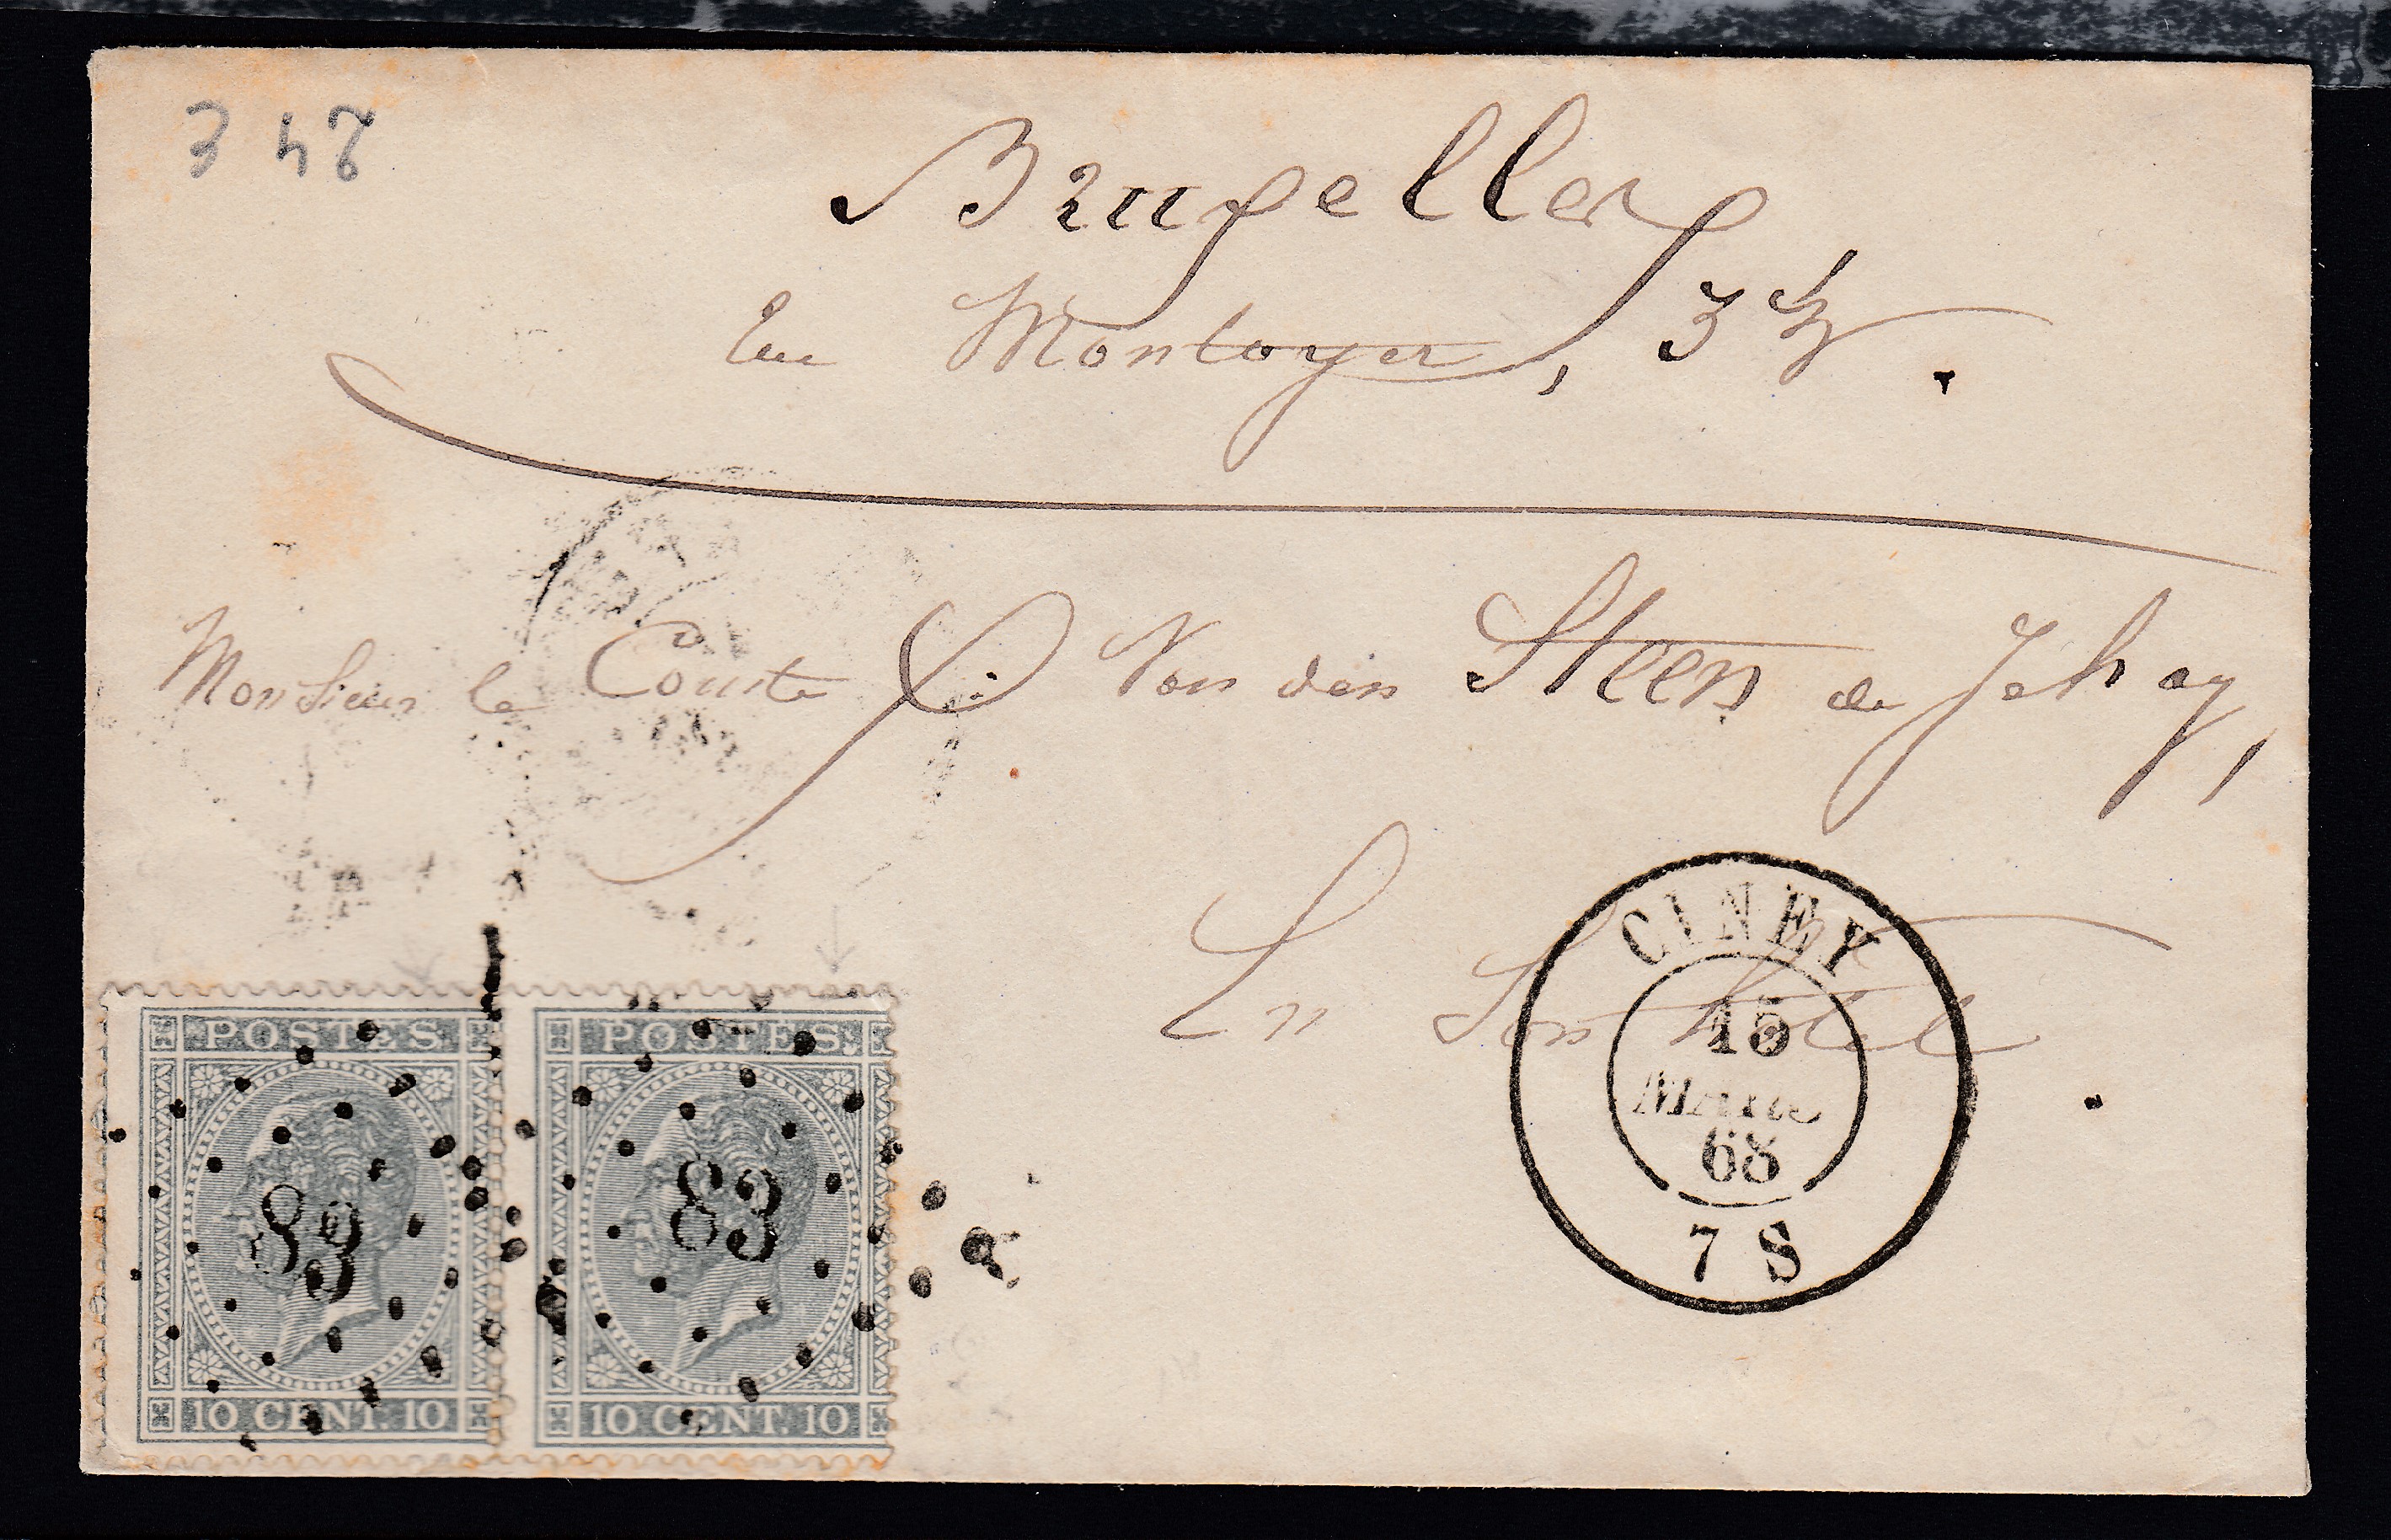 Bruxelles
rue Montoyer, 33.
Monsieur le Comte X. Van den Steen de Jehay,
En Son hôtel.
CINEY
15
MARS
68
7 S
POSTES
83
10 CENT. 10
POSTES
83
10 CENT. 10